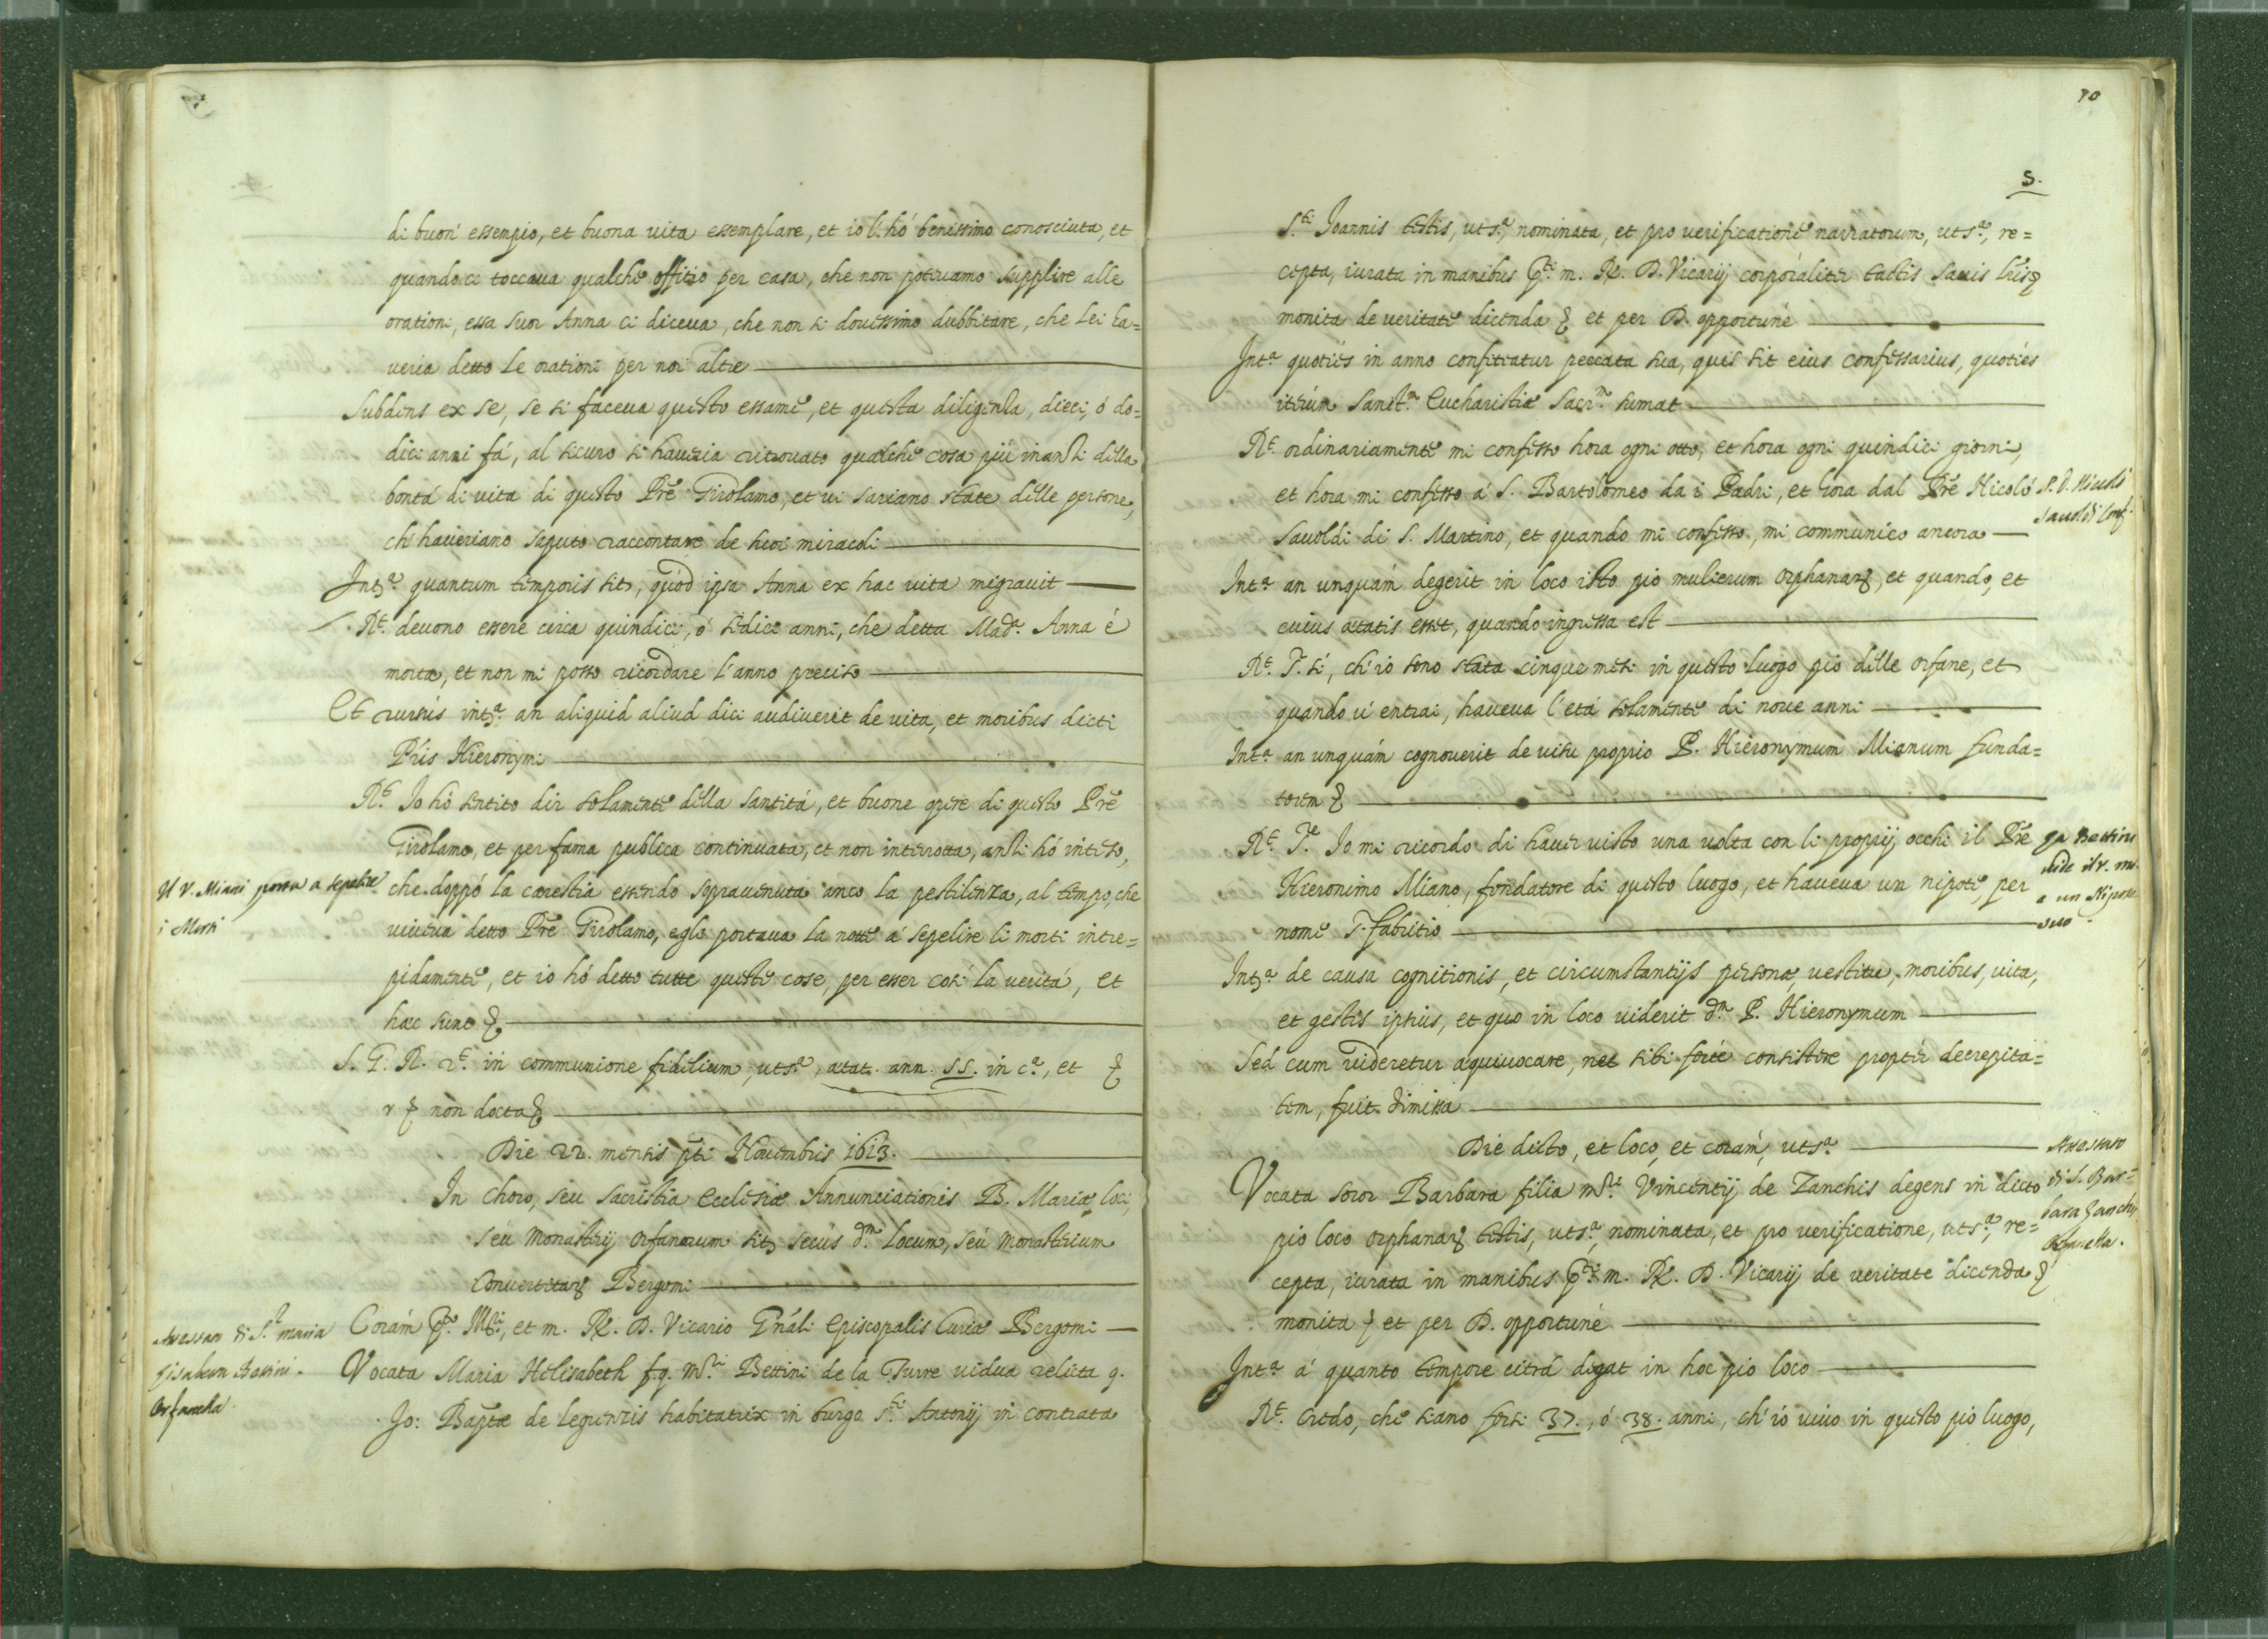 di buon' essempio, et buona uita essemplare, et io l'hó benissimo conosciuta, et
quando ci toccaua qualche offitio per casa, che non poteuamo supplire alle
orationi, essa Suor Anna ci diceua, che non si douessimo dubbitare, che Lei ha=
ueria detto le orationi per noi altre
Subdens ex se, se si faceua questo essame, et questa diligenza, dieci, ó do=
dici anni fá, al sicuro si haueria ritrouato qualche cosa piú inanzi della
bontá di uita di questo Pre Girolamo, et ui sariano state delle persone,
ch'haueriano saputo raccontare de suoi miracoli
Inta quantum temporis sit, quód ipsa Anna ex hac uita migrauit
Rt. deuono essere circa quindici, ó sedici anni, che detta Mada. Anna é
morta, et non mi posso ricordare l'anno preciso
Et rursús inta. an aliquid aliud dici audiuerit de uita, et moribus dicti
Pris Hieronymi
Rt. Io hó sentito dir solamente della santitá, et buone opere di questo Pre
Girolamo, et per fama publica continuata, et non interrotta, anzi hó inteso,
Il V. Miani portau a sepelire
i Morti
che doppó la carestia essendo soprauenuta anco la pestilenza, al tempo, che
uiueua detto Pre Girolamo, egli portaua la notte á sepelire li morti intre=
pidamente, et io hó detto tutte queste cose, per esser cosí la veritá, et
hæc sunt &.
S. G. R. rt. in communione fidelium, utsa, ætat. ann. 55. in ca, et &
r & non docta &.
Die 22. mensis pti Nouembris 1613.
In choro, seu sacristia Ecclesiæ Annunciationis B. Mariæ loci,
seú Monasterij orfanorum sit. secús dm. Locum, seú Monasterium
Conuertitarum Bergomi
Coram pto. Mri, et m. R. D. Vicario Gnáli Episcopalis Curiæ Bergomi
di S.r maria
Orfanella
Vocata Maria Helisabeth f.q. mri. Bettini de la Turre uidua relicta q.
Jo: Baptæ de habitatrix in burgo sti. Antonij in contrata
70
5.
S.ti Joannis testis, utsa, nominata, et pro verificatione narratorum, utsa, re=
cepta, iurata in manibus pti. m. R. D. Vicarij corporaliter tactis sacris
monita de ueritate dicenda & et per D. opportuné
Inta quoties in anno confiteatur peccata sua, quis sit eius confessarius, quoties
iterúm Sanct.m Eucharistiæ Sacr.m sumat
Rt. ordinariamente mi confesso hora ogni otto, et hora ogni quindici giorni,
et hora mi confesso á S. Bartolomeo da i Padri, et hora dal Pre Nicoló
P. D. Nicoló
Sauoldi Conf.
Sauoldi di S. Martino, et quando mi confesso, mi communico ancora
Inta an unquám degerit in loco isto pio mulierum orphanarum, et quando, et
cuius ætatis esset, quando ingressa est
Rt. T. sí, ch'io sono stata cinque mesi in questo luogo pio delle orfane, et
quando u'entrai, haueua l'etá solamente di noue anni
Inta an unquám cognouerit de uisu proprio P. Hieronymum Mianum funda=
torem &
Rt. Te. Io mi ricordo di hauer uisto una uolta con li proprij occhi il Pre
Hieronimo Miano, fondatore di questo luogo, et haueua un nipote, per
nome T. Fabritio
la Bettini
uide il V. mi.
e un Nipote
suo
Inta de causa cognitionis, et circumstantijs personæ, uestitu, moribus, uita,
et gestis ipsius, et quo in loco uiderit dm P. Hieronymum
Sed cum uideretur æquiuocare, nec sibi forté consistere proptér decrepita=
tem, fuit dimissa
Die dicto, et loco, et corám, utsa
Vocata soror Barbara filia mri. Vincentij de Zanchis degens in dicto
pio loco orphanarum testis, utsa, nominata, et pro verificatione, utsa, re=
di S. Bar=
bara Zanchi
Orfanella.
cepta, iurata in manibus pti. m. R. D. Vicarij de veritate dicenda &
monita & et per D. opportuné
Inta á quanto tempore citrá degat in hoc pio loco
Rt. Credo, che siano forsi 37., ó 38. anni, ch'ió uiuo in questo pio luogo,